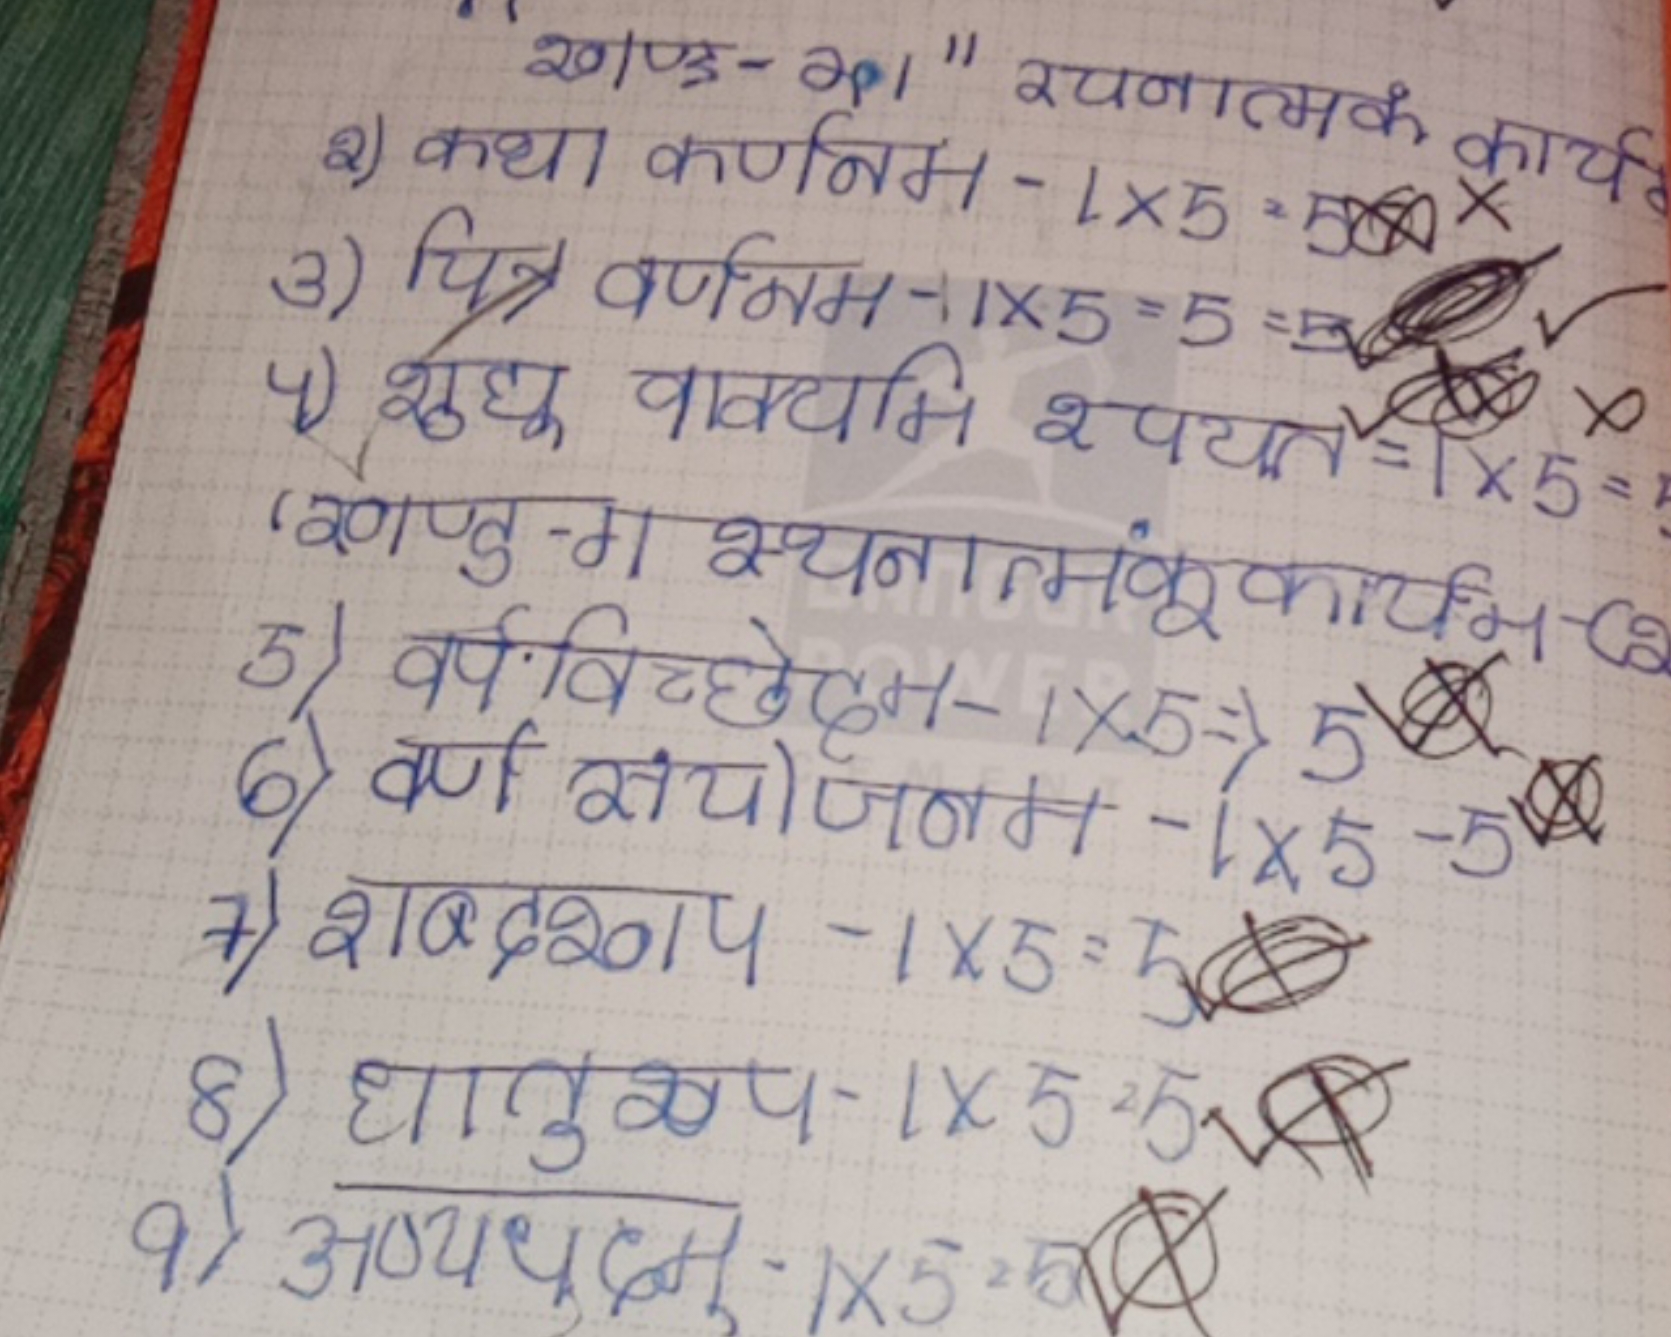 खण्ड-का" रचनात्मकं कार्यम
२) कथा कर्णनिम - 1×5 = 5 ×
3) चित्र वर्णनम - 1×5 = 5 = 5 ✓
4) शुद्ध वाक्यानि = 1×5 = 5
'खण्ड-ग कार्यम -(२
5) वर्ण विच्छेदम - 1×5 => 5
6) वर्ण संयोजनम - 1×5 - 5
7) शब्दरूप - 1×5 = 5
8) धातुरूप - 1×5 = 5
9) अव्ययपदम् - 1×5 = 5
POWER